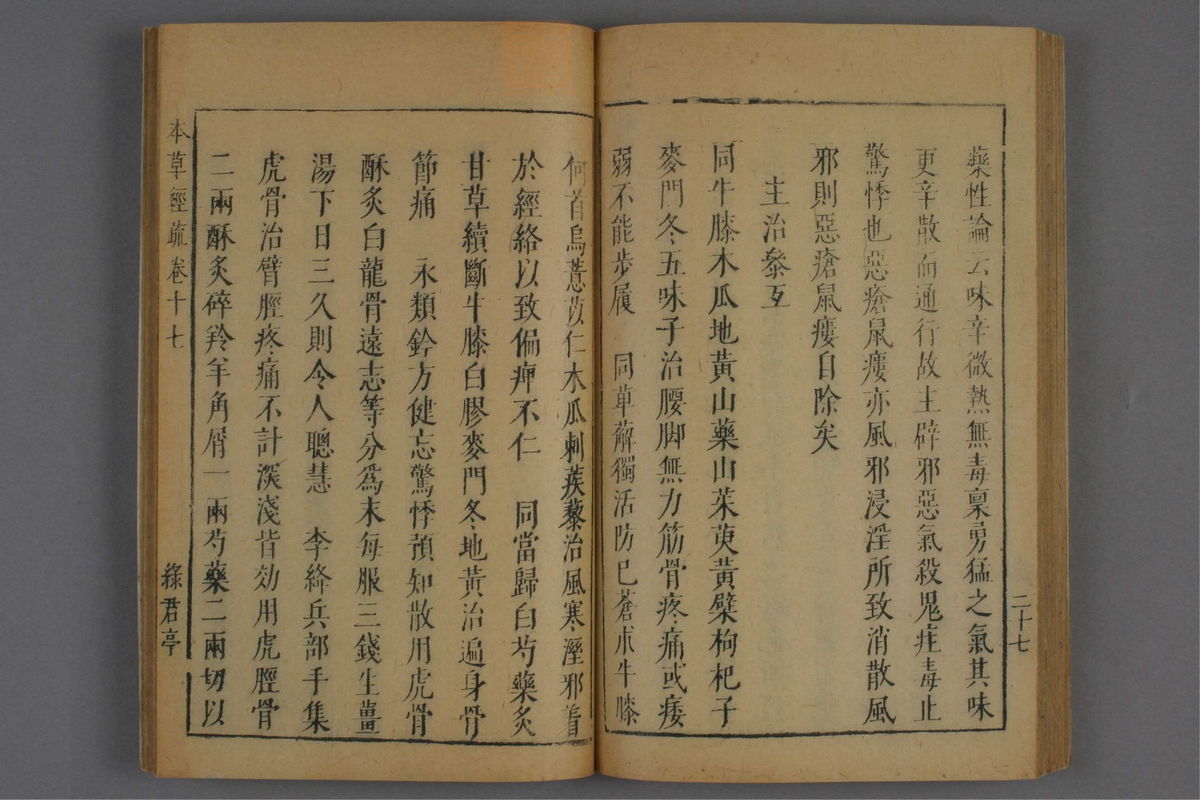 藥性論云味辛微熱無毒稟勇猛之氣其味
更辛散而通行故主辟邪惡氣殺鬼疰毒止
驚悸也惡瘡鼠瘻亦風邪浸淫所致消散風
邪則惡瘡鼠瘻自除矣
主治叅互
同牛膝木瓜地黃山藥山茱萸黃檗枸杞子
麥門冬五味子治腰脚無力筋骨疼痛或痿
弱不能步履　同萆薢獨活防已蒼朮牛膝
二十七
何首烏薏苡仁木瓜刺蒺藜治風寒溼邪着
於經絡以致偏痺不仁　同當歸白芍藥炙
甘草續斷牛膝白膠麥門冬地黃治遍身骨
節痛　永類鈐方健忘驚悸預知散用虎骨
酥炙白龍骨遠志等分爲末每服三錢生薑
湯下日三久則令人聰慧　李絳兵部手集
虎骨治臂脛疼痛不計深淺皆効用虎脛骨
二兩酥炙碎羚羊角屑一兩芍藥二兩切以
本草經疏卷十七
綠君亭